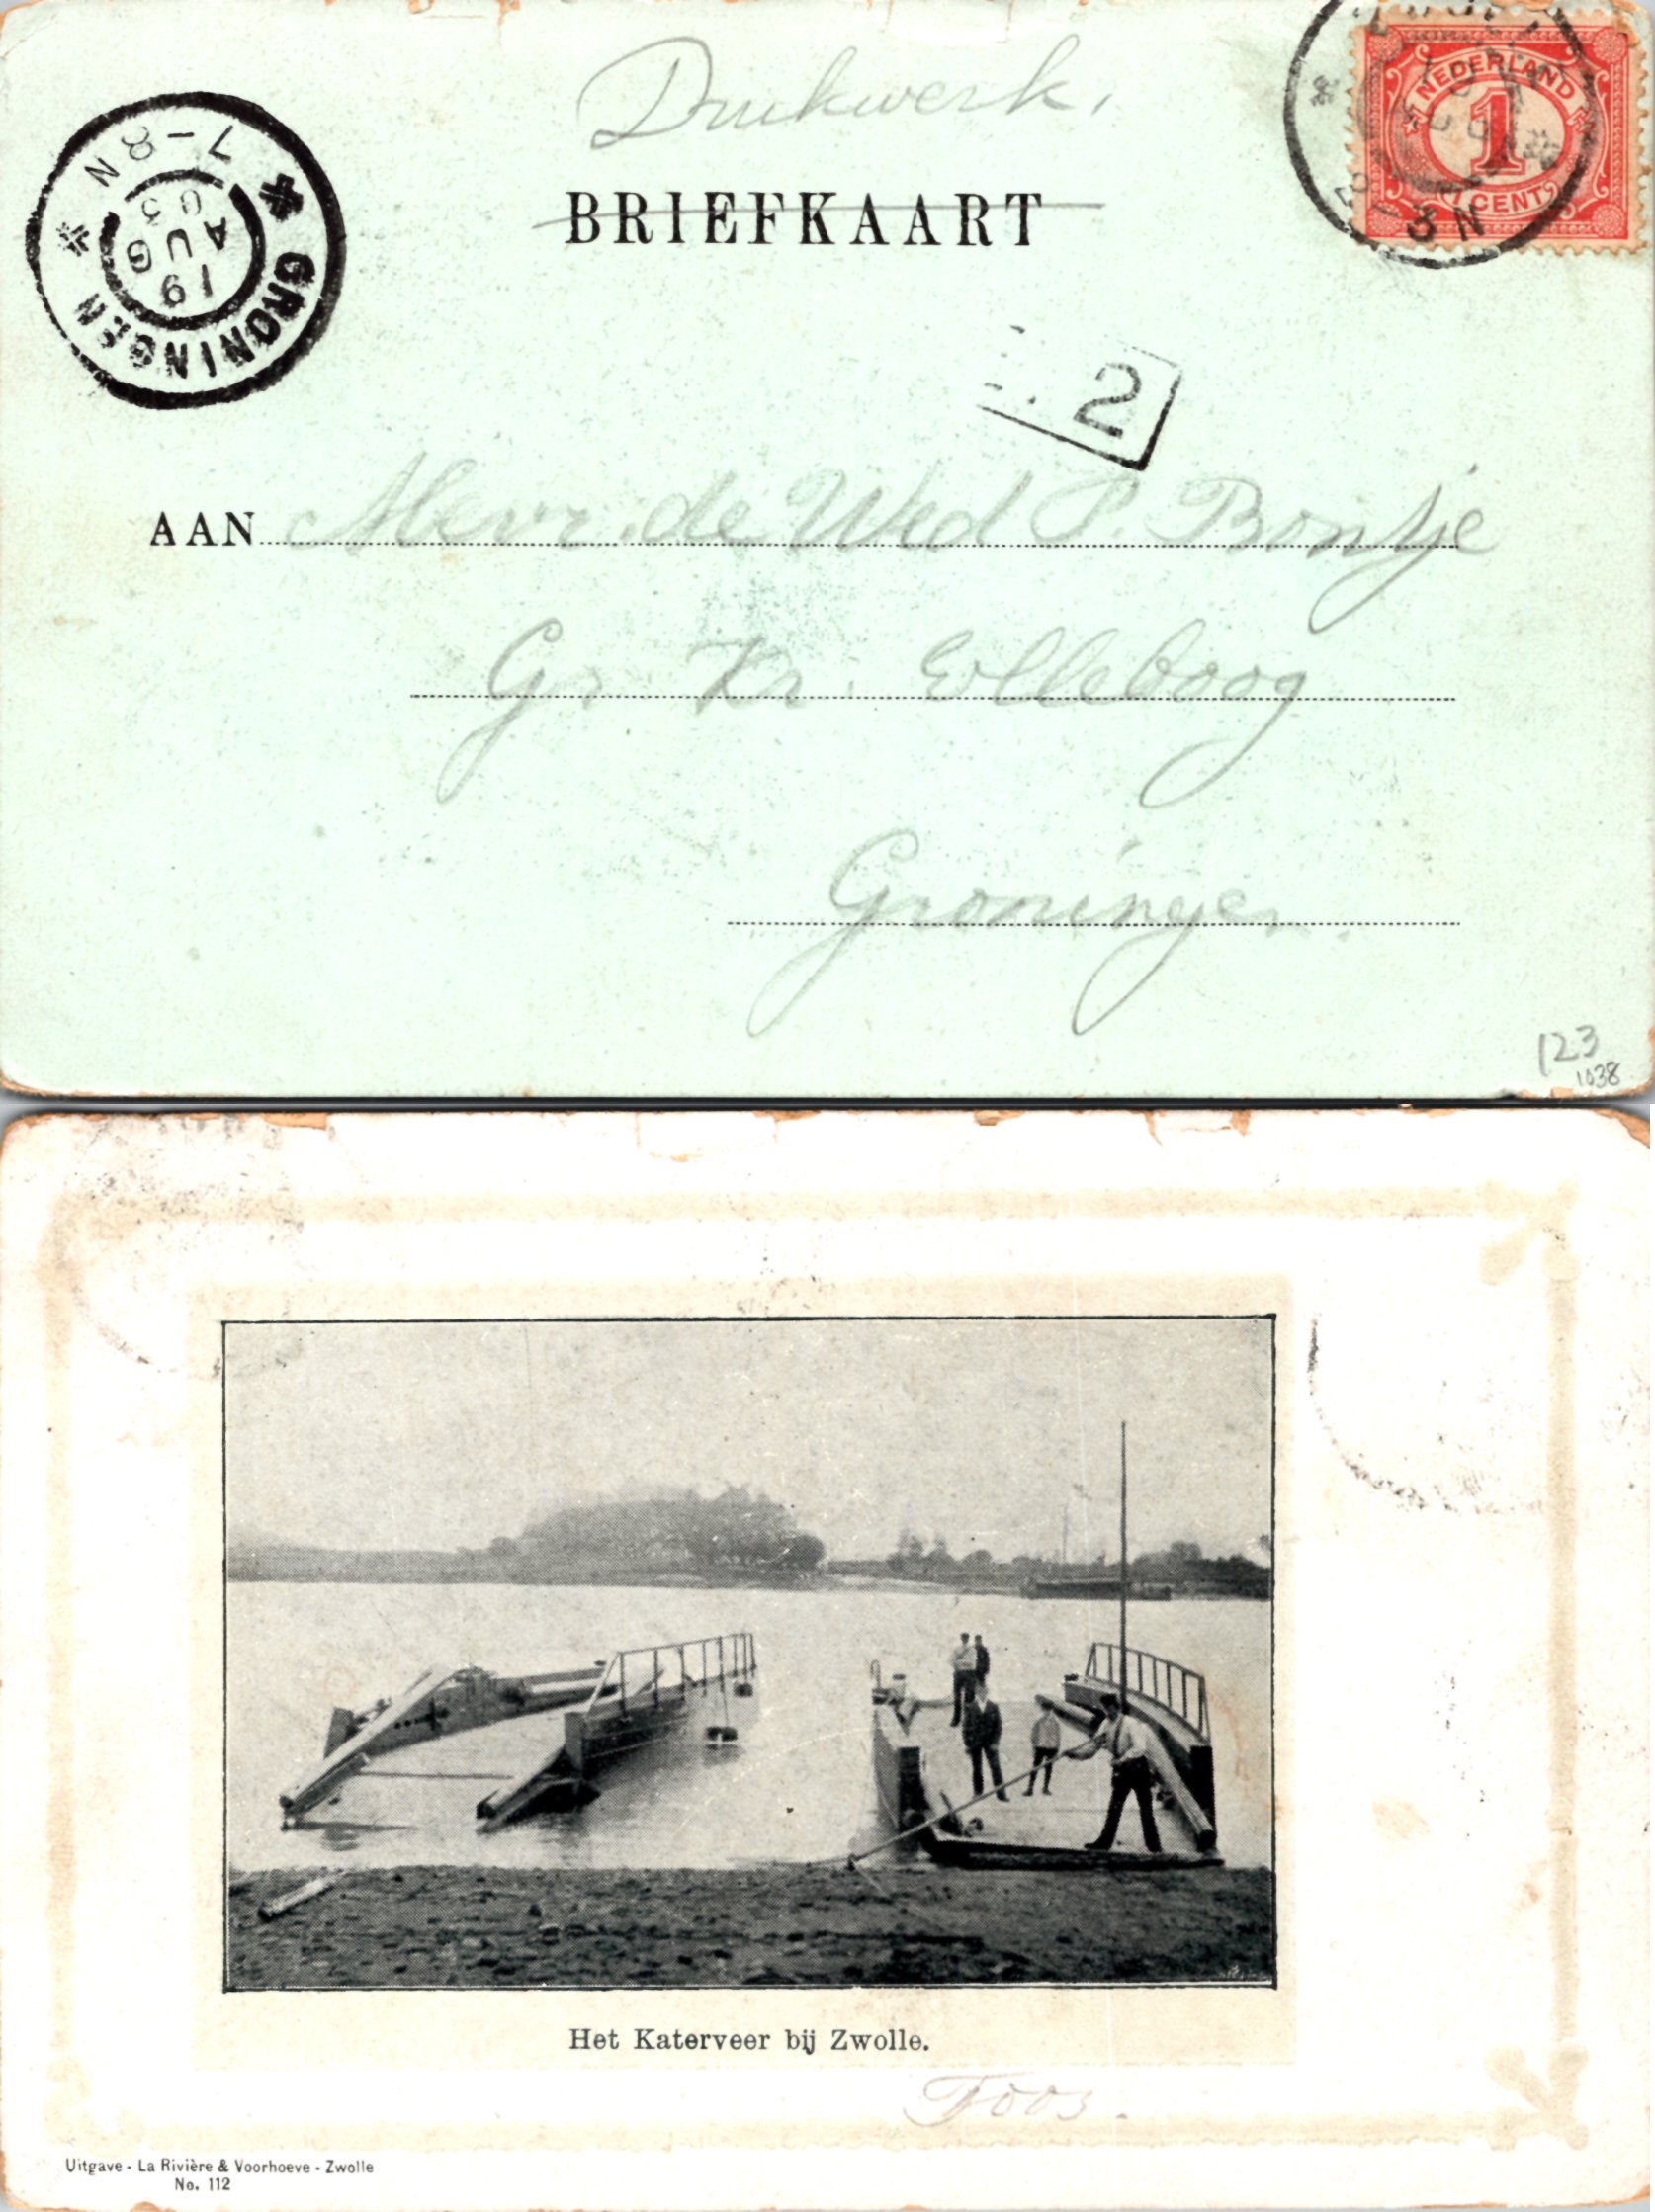 Drukwerk.
BRIEFKAART
GRONINGEN
7-8N
19
AUG
05
NEDERLAND
1
1 CENT
2-3N
2
AAN Mevr. de Wed P. Bontje
Gr Kr. Elleboog
Groningen.
123
1038
Het Katerveer bij Zwolle.
Toos.
Uitgave - La Rivière & Voorhoeve - Zwolle
No. 112